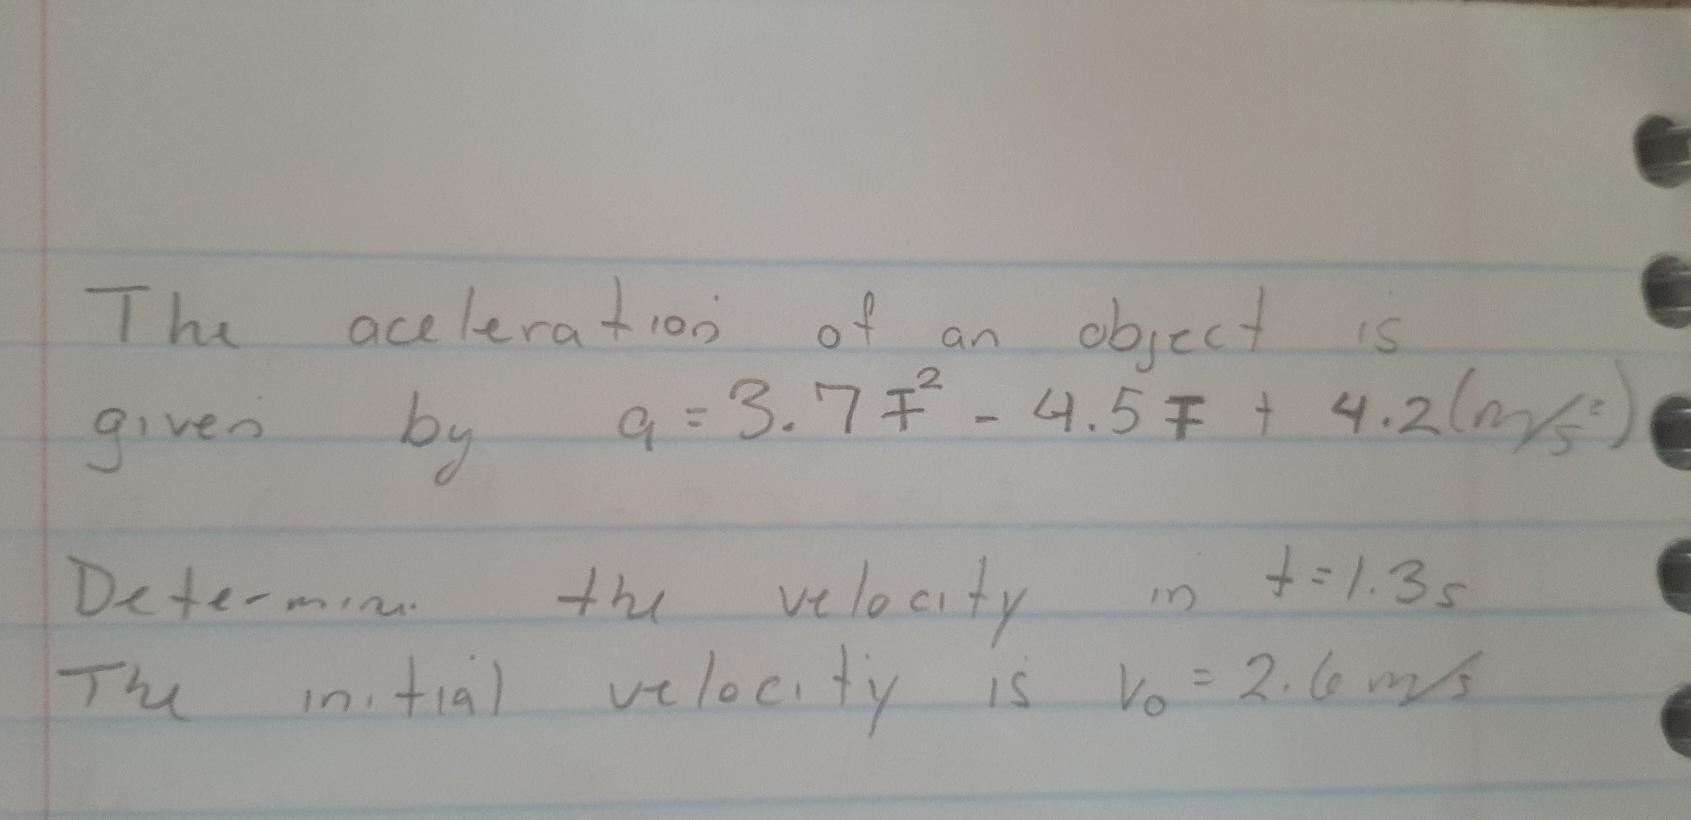 The aceleration of an object is
given by a = 3.7 t² - 4.5 t + 4.2 (m/s²)
Determine the velocity in t = 1.3 s
The initial velocity is v₀ = 2.6 m/s